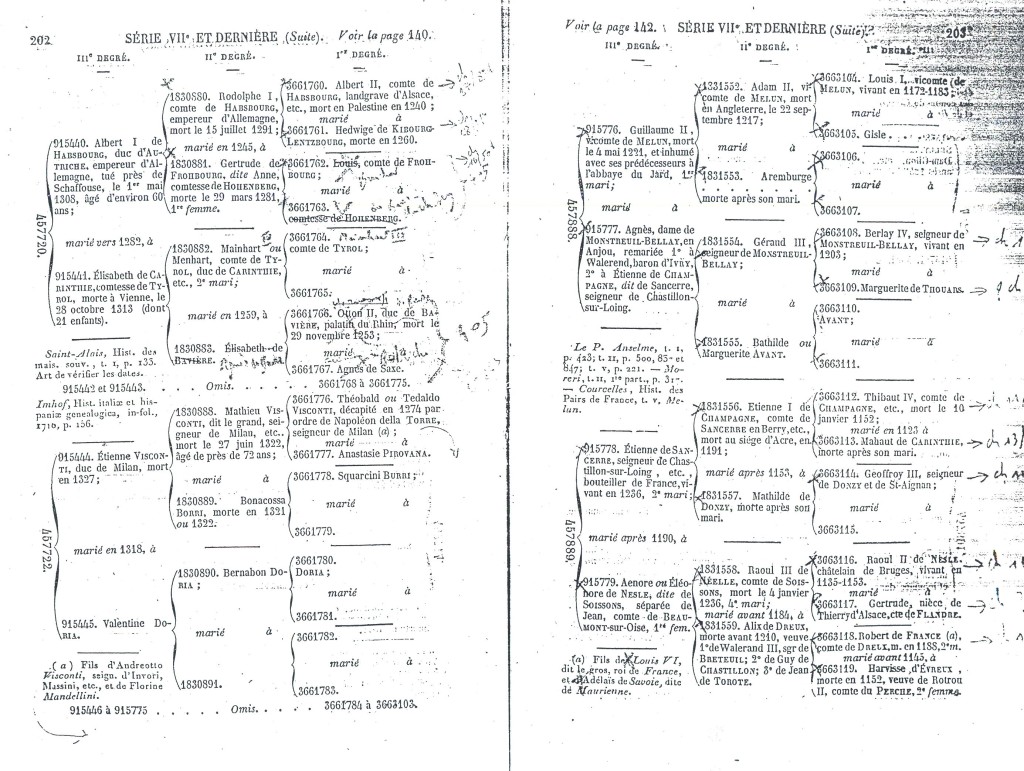 202 SÉRIE VIIe ET DERNIÈRE (Suite). Voir la page 140.
IIIe DEGRÉ. IIe DEGRÉ. Ier DEGRÉ.
915440. Albert I de
HABSBOURG, duc d'AU-
TRICHE, empereur d'Al-
lemagne, tué près de
Schaffouse, le 1er mai
1308, âgé d'environ 60
ans;
457720.
marié vers 1282, à
915441. Élisabeth de CA-
RINTHIE, comtesse de TY-
ROL, morte à Vienne, le
28 octobre 1313 (dont
21 enfants).
Saint-Alais, Hist. des
mais. souv., t. I, p. 135.
Art de vérifier les dates.
1830880. Rodolphe I,
comte de HABSBOURG,
empereur d'Allemagne,
mort le 15 juillet 1291;
marié en 1245, à
1830881. Gertrude de
FROHBOURG, dite Anne,
comtesse de HOHENBERG,
morte le 29 mars 1281,
1re femme.
1830882. Mainhart ou
Menhart, comte de TY-
ROL, duc de CARINTHIE,
etc., 2e mari;
marié en 1259, à
1830883. Élisabeth de
BAVIÈRE.
3661760. Albert II, comte de
HABSBOURG, landgrave d'Alsace,
etc., mort en Palestine en 1240;
marié à
3661761. Hedwige de KIBOURG-
LENTZBOURG, morte en 1260.
3661762. Louis, comte de FROH-
BOURG;
marié à
3661763.
comtesse de HOHENBERG.
3661764.
comte de TYROL;
marié à
3661765.
3661766. Otton II, duc de BA-
VIÈRE, palatin du Rhin, mort le
29 novembre 1253;
marié à
3661767. Agnès de Saxe.
915442 et 915443. . . . . Omis. . . . . 3661768 à 3661775.
Imhof, Hist. italiæ et his-
paniæ genealogica, in-fol.,
1710, p. 156.
915444. Étienne VISCON-
TI, duc de Milan, mort
en 1327;
457722.
marié en 1318, à
915445. Valentine DO-
RIA.
(a) Fils d'Andreotto
Visconti, seign. d'Invori,
Massini, etc., et de Florine
Mandellini.
1830888. Mathieu VIS-
CONTI, dit le grand, sei-
gneur de Milan, etc.,
mort le 27 juin 1322,
âgé de près de 72 ans;
marié à
1830889. Bonacossa
BORRI, morte en 1321
ou 1322.
1830890. Bernabon DO-
RIA;
marié à
1830891.
3661776. Théobald ou Tedaldo
VISCONTI, décapité en 1274 par
ordre de Napoléon della TORRE,
seigneur de Milan (a);
marié à
3661777. Anastasie PIROVANA.
3661778. Squarcini BURRI;
marié à
3661779.
3661780.
DORIA;
marié à
3661781.
3661782.
marié à
3661783.
915446 à 915775 . . . . . Omis. . . . . 3661784 à 3663103.
Voir la page 142. SÉRIE VIIe ET DERNIÈRE (Suite). 203
IIIe DEGRÉ. IIe DEGRÉ. Ier DEGRÉ.
915776. Guillaume II,
vicomte de MELUN, mort
le 4 mai 1221, et inhumé
avec ses prédécesseurs à
l'abbaye du Jard, 1er
mari;
457888.
marié à
915777. Agnès, dame de
MONSTREUIL-BELLAY, en
Anjou, remariée 1° à
Walerend, baron d'IVRY,
2° à Étienne de CHAM-
PAGNE, dit de Sancerre,
seigneur de Chastillon-
sur-Loing.
Le P. Anselme, t. I,
p. 423; t. II, p. 500, 85e et
847; t. V, p. 221. — Mo-
reri, t. II, 1re part., p. 31.
— Courcelles, Hist. des
Pairs de France, t. V. Me-
lun.
1831552. Adam II, vi-
comte de MELUN, mort
en Angleterre, le 22 sep-
tembre 1217;
marié à
1831553. Aremburge
morte après son mari.
1831554. Géraud III,
seigneur de MONSTREUIL-
BELLAY;
marié à
1831555. Bathilde ou
Marguerite AVANT.
3663104. Louis I, vicomte de
MELUN, vivant en 1172-1183;
marié à
3663105. Gisle.
3663106.
marié à
3663107.
3663108. Berlay IV, seigneur de
MONSTREUIL-BELLAY, vivant en
1203;
marié à
3663109. Marguerite de THOUARS.
3663110.
AVANT;
marié à
3663111.
915778. Étienne de SAN-
CERRE, seigneur de Chas-
tillon-sur-Loing, etc.,
bouteiller de France, vi-
vant en 1236, 2e mari;
457889.
marié après 1190, à
915779. Aenore ou Éléo-
nore de NESLE, dite de
SOISSONS, séparée de
Jean, comte de BEAU-
MONT-sur-Oise, 1re fem.
(a) Fils de Louis VI,
dit le gros, roi de France,
et d'Adélaïs de Savoie, dite
de Maurienne.
1831556. Etienne I de
CHAMPAGNE, comte de
SANCERRE en Berry, etc.,
mort au siége d'Acre, en
1191;
marié après 1153, à
1831557. Mathilde de
DONZY, morte après son
mari.
1831558. Raoul III de
NÉELLE, comte de Sois-
sons, mort le 4 janvier
1236, 4e mari;
marié avant 1184, à
1831559. Alix de DREUX,
morte avant 1210, veuve
1° de Walerand III, sgr de
BRETEUIL; 2° de Guy de
CHASTILLON; 3° de Jean
de TOROTE.
3663112. Thibaut IV, comte de
CHAMPAGNE, etc., mort le 10
janvier 1152;
marié en 1123 à
3663113. Mahaut de CARINTHIE,
morte après son mari.
3663114. Geoffroy III, seigneur
de DONZY et de St-Aignan;
marié à
3663115.
3663116. Raoul II de NESLE,
châtelain de Bruges, vivant en
1135-1153.
marié à
3663117. Gertrude, nièce de
Thierry d'Alsace, cte de FLANDRE.
3663118. Robert de FRANCE (a),
comte de DREUX, m. en 1188, 2e m.
marié avant 1145, à
3663119. Harvisse d'ÉVREUX,
morte en 1152, veuve de Rotrou
II, comte du PERCHE, 2e femme.